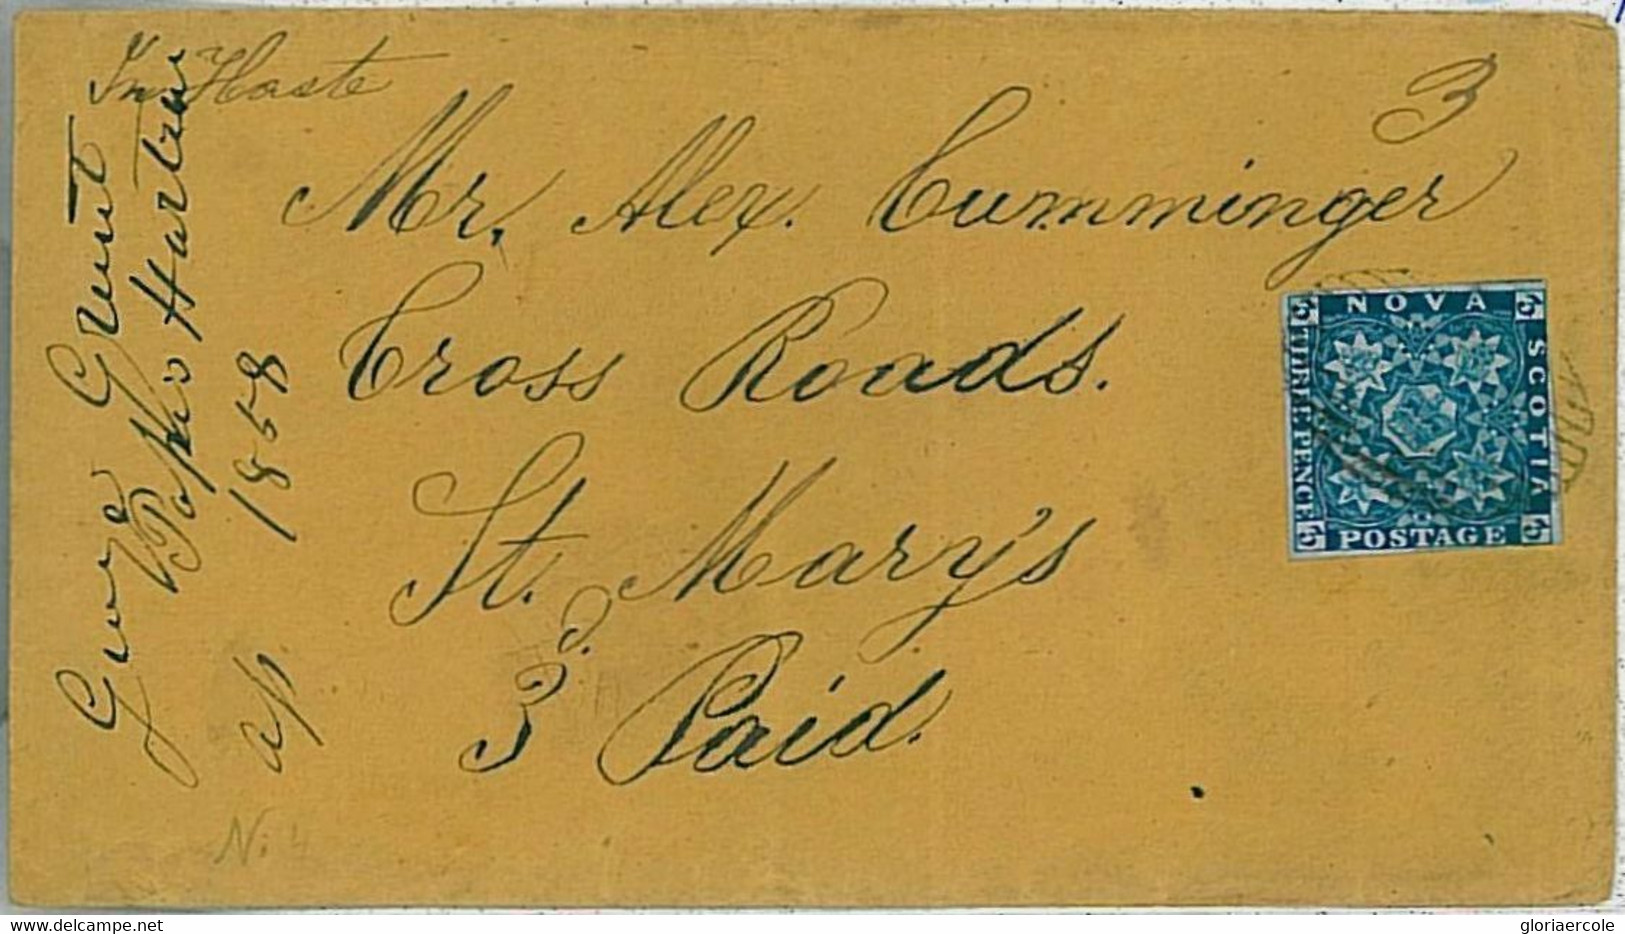 In Haste
3
Mr. Alex. Cumminger
Cross Roads.
St. Mary's
3D. Paid.
George Grant
1858
NOVA
SCOTIA
THREE PENCE
POSTAGE
delcampe.net
gloriaercole